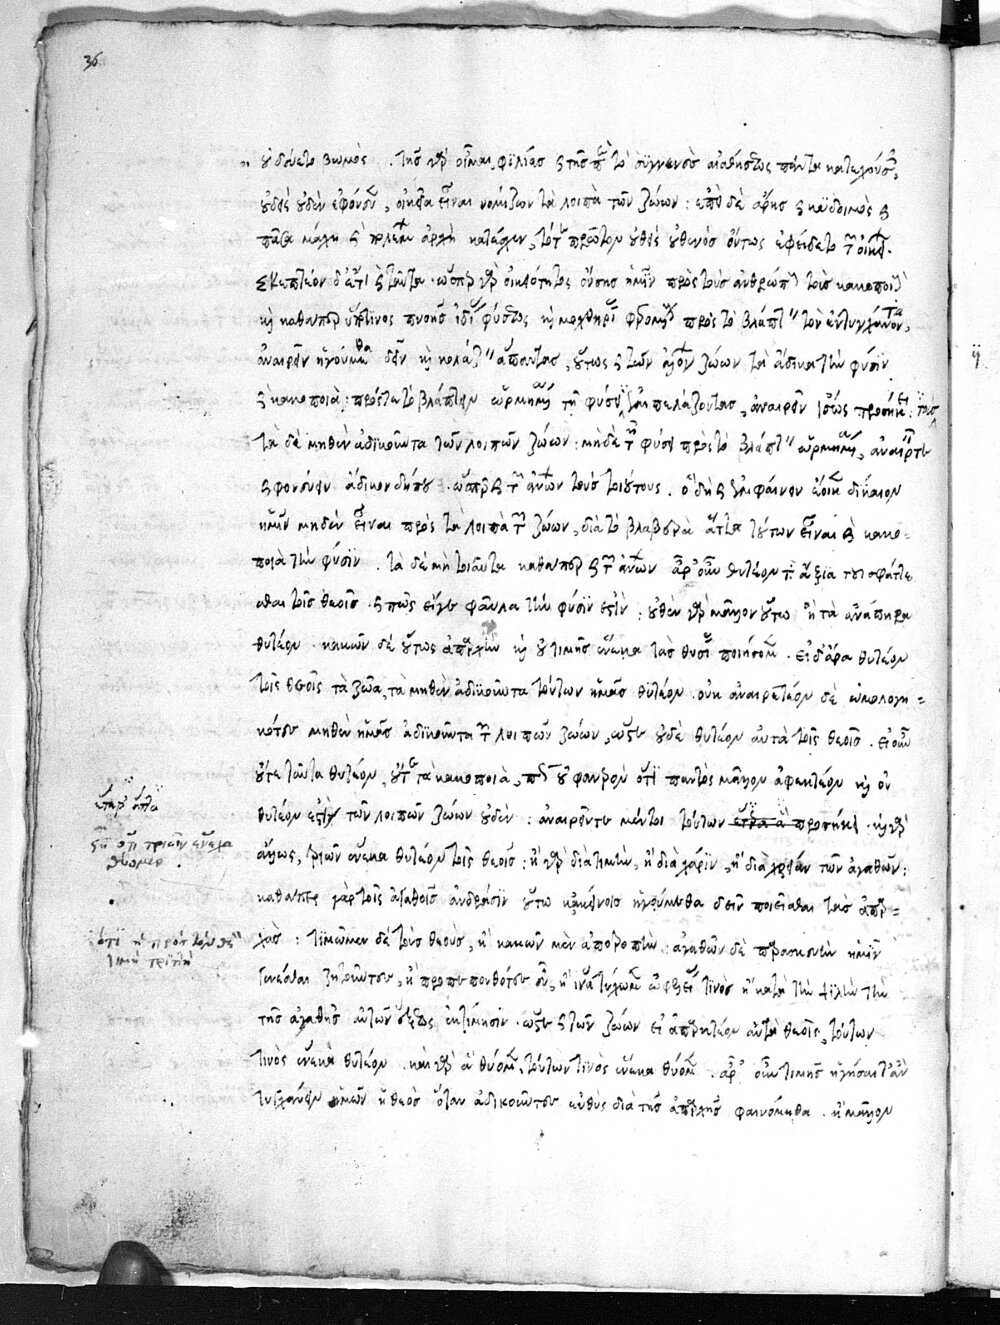 36
οὐ δεύετο βωμός . τῆς γὰρ οἶμαι φιλίας καὶ τῆς περὶ τὸ συγγενὲς αἰσθήσεως πάντα κατεχούσης,
οὐδεὶς οὐδὲν ἐφόνευεν, οἰκεῖα εἶναι νομίζων τὰ λοιπὰ τῶν ζώων : ἐπεὶ δὲ ἄρης καὶ κυδοιμὸς καὶ
πᾶσα μάχη καὶ πολέμων ἀρχὴ κατέσχεν, τότε πρῶτον οὐθεὶς οὐθενὸς ὄντως ἐφείδετο τῶν οἰκείων.
σκεπτέον δ' ἔτι καὶ ταῦτα . ὥσπερ γὰρ οἰκειότητος οὔσης ἡμῖν πρὸς τοὺς ἀνθρώπους τοὺς κακοποιοὺς
καὶ καθάπερ ὑπό τινος πνοῆς ἰδίας φύσεως καὶ μοχθηρίας φερομένους πρὸς τὸ βλάπτειν τὸν ἐντυγχάνοντα,
ἀναιρεῖν ἡγούμεθα δεῖν καὶ κολάζειν ἅπαντας, οὕτως καὶ τῶν ἀλόγων ζώων τὰ ἄδικα τὴν φύσιν
καὶ κακοποιὰ πρός τε τὸ βλάπτειν ὡρμημένα τῇ φύσει τοὺς ἐμπελάζοντας, ἀναιρεῖν ἴσως προσήκει :
τὰ δὲ μηθὲν ἀδικοῦντα τῶν λοιπῶν ζώων : μηδὲ τῇ φύσει πρὸς τὸ βλάπτειν ὡρμημένα, ἀναιρεῖν τε
καὶ φονεύειν ἄδικον δήπου . ὥσπερ καὶ τῶν ἀνθρώπων τοὺς τοιούτους . ὃ δὴ καὶ ἐμφαίνειν ἔοικε δίκαιον
ἡμῖν μηδὲν εἶναι πρὸς τὰ λοιπὰ τῶν ζώων, διὰ τὸ βλαβερὰ ἄττα τούτων εἶναι καὶ κακο-
ποιὰ τὴν φύσιν . τὰ δὲ μὴ τοιαῦτα καθάπερ καὶ τῶν ἀνθρώπων ἆρ' οὖν θυτέον τὰ ἄξια τοῦ σφάττε
σθαι τοῖς θεοῖς . καὶ πῶς εἴγε φαῦλα τὴν φύσιν ἐστίν : οὐθὲν γὰρ μᾶλλον οὕτω ἢ τὰ ἀνάπηρα
θυτέον . κακῶν δὲ οὕτως ἀπαρχὴν καὶ οὐ τιμῆς ἕνεκα τὰς θυσίας ποιήσομεν . εἰ δ' ἄρα θυτέον
τοῖς θεοῖς τὰ ζῶα, τὰ μηθὲν ἀδικοῦντα τούτων ἡμᾶς θυτέον . οὐκ ἀναιρετέον δὲ ὡμολογη=
κότες μηθὲν ἡμᾶς ἀδικοῦντα τῶν λοιπῶν ζώων, ὥστε οὐδὲ θυτέον αὐτὰ τοῖς θεοῖς . εἰ οὖν
οὔτε ταῦτα θυτέον, οὔτε τὰ κακοποιὰ, πῶς οὐ φανερὸν ὅτι παντὸς μᾶλλον ἀφεκτέον καὶ οὐ
θυτέον ἐστὶ τῶν λοιπῶν ζώων οὐδὲν : ἀναιρεῖν γε μέντοι τούτων ἕτερα προσήκει . καὶ γὰρ
ἄλλως, τριῶν ἕνεκα θυτέον τοῖς θεοῖς : ἢ γὰρ διὰ τιμὴν, ἢ διὰ χάριν, ἢ διὰ χρείαν τῶν ἀγαθῶν :
καθάπερ γὰρ τοῖς ἀγαθοῖς ἀνδράσιν οὕτω κἀκείνοις ἡγούμεθα δεῖν ποιεῖσθαι τὰς ἀπαρ=
χάς : τιμῶμεν δὲ τοὺς θεοὺς, ἢ κακῶν μὲν ἀποτροπὴν : ἀγαθῶν δὲ παρασκευὴν ἡμῖν
γενέσθαι ζητοῦντες, ἢ προπεπονθότες εὖ, ἢ ἵνα τύχωμεν ὠφελείας τινὸς ἢ κατὰ τὴν ψιλὴν τὴν
τῆς ἀγαθῆς αὐτῶν ἕξεως ἐκτίμησιν . ὥστε καὶ τῶν ζώων εἰ ἀπαρκτέον αὐτὰ θεοῖς, τούτων
τινὸς ἕνεκα θυτέον . καὶ γὰρ ἃ θύομεν, τούτων τινὸς ἕνεκα θύομεν . ἆρ' οὖν τιμῆς ἡγήσαιτ' ἂν
τυγχάνειν ἡμῶν ὁ θεὸς ὅταν ἀδικοῦντες εὐθὺς διὰ τῆς ἀπαρχῆς φαινώμεθα . ἢ μᾶλλον
ὅτι τριῶν ἕνεκα
θύομεν